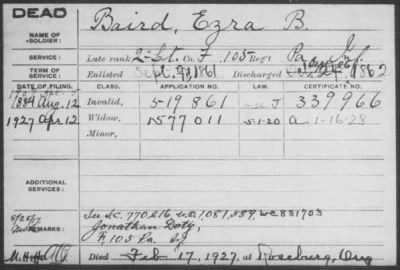 DEAD
NAME OF SOLDIER: Baird, Ezra B.
SERVICE: Late rank 2" Lt. Co. F, 105 Reg't Pa. Inf.
TERM OF SERVICE: Enlisted Sept. 1861 Discharged 1862
DATE OF FILING. CLASS. APPLICATION NO. LAW. CERTIFICATE NO.
1884 Aug. 12 Invalid, 519861 J 339966
1927 Apr. 12 Widow, 1577011 5-1-20 a. 1-16-28
Minor,
ADDITIONAL SERVICES:
REMARKS: See I.C. 770,216 W.O. 1,081,559, WC 831703
Jonathan Doty,
F, 105 Pa. Inf
Died Feb 17, 1927, at Roseburg, Oreg